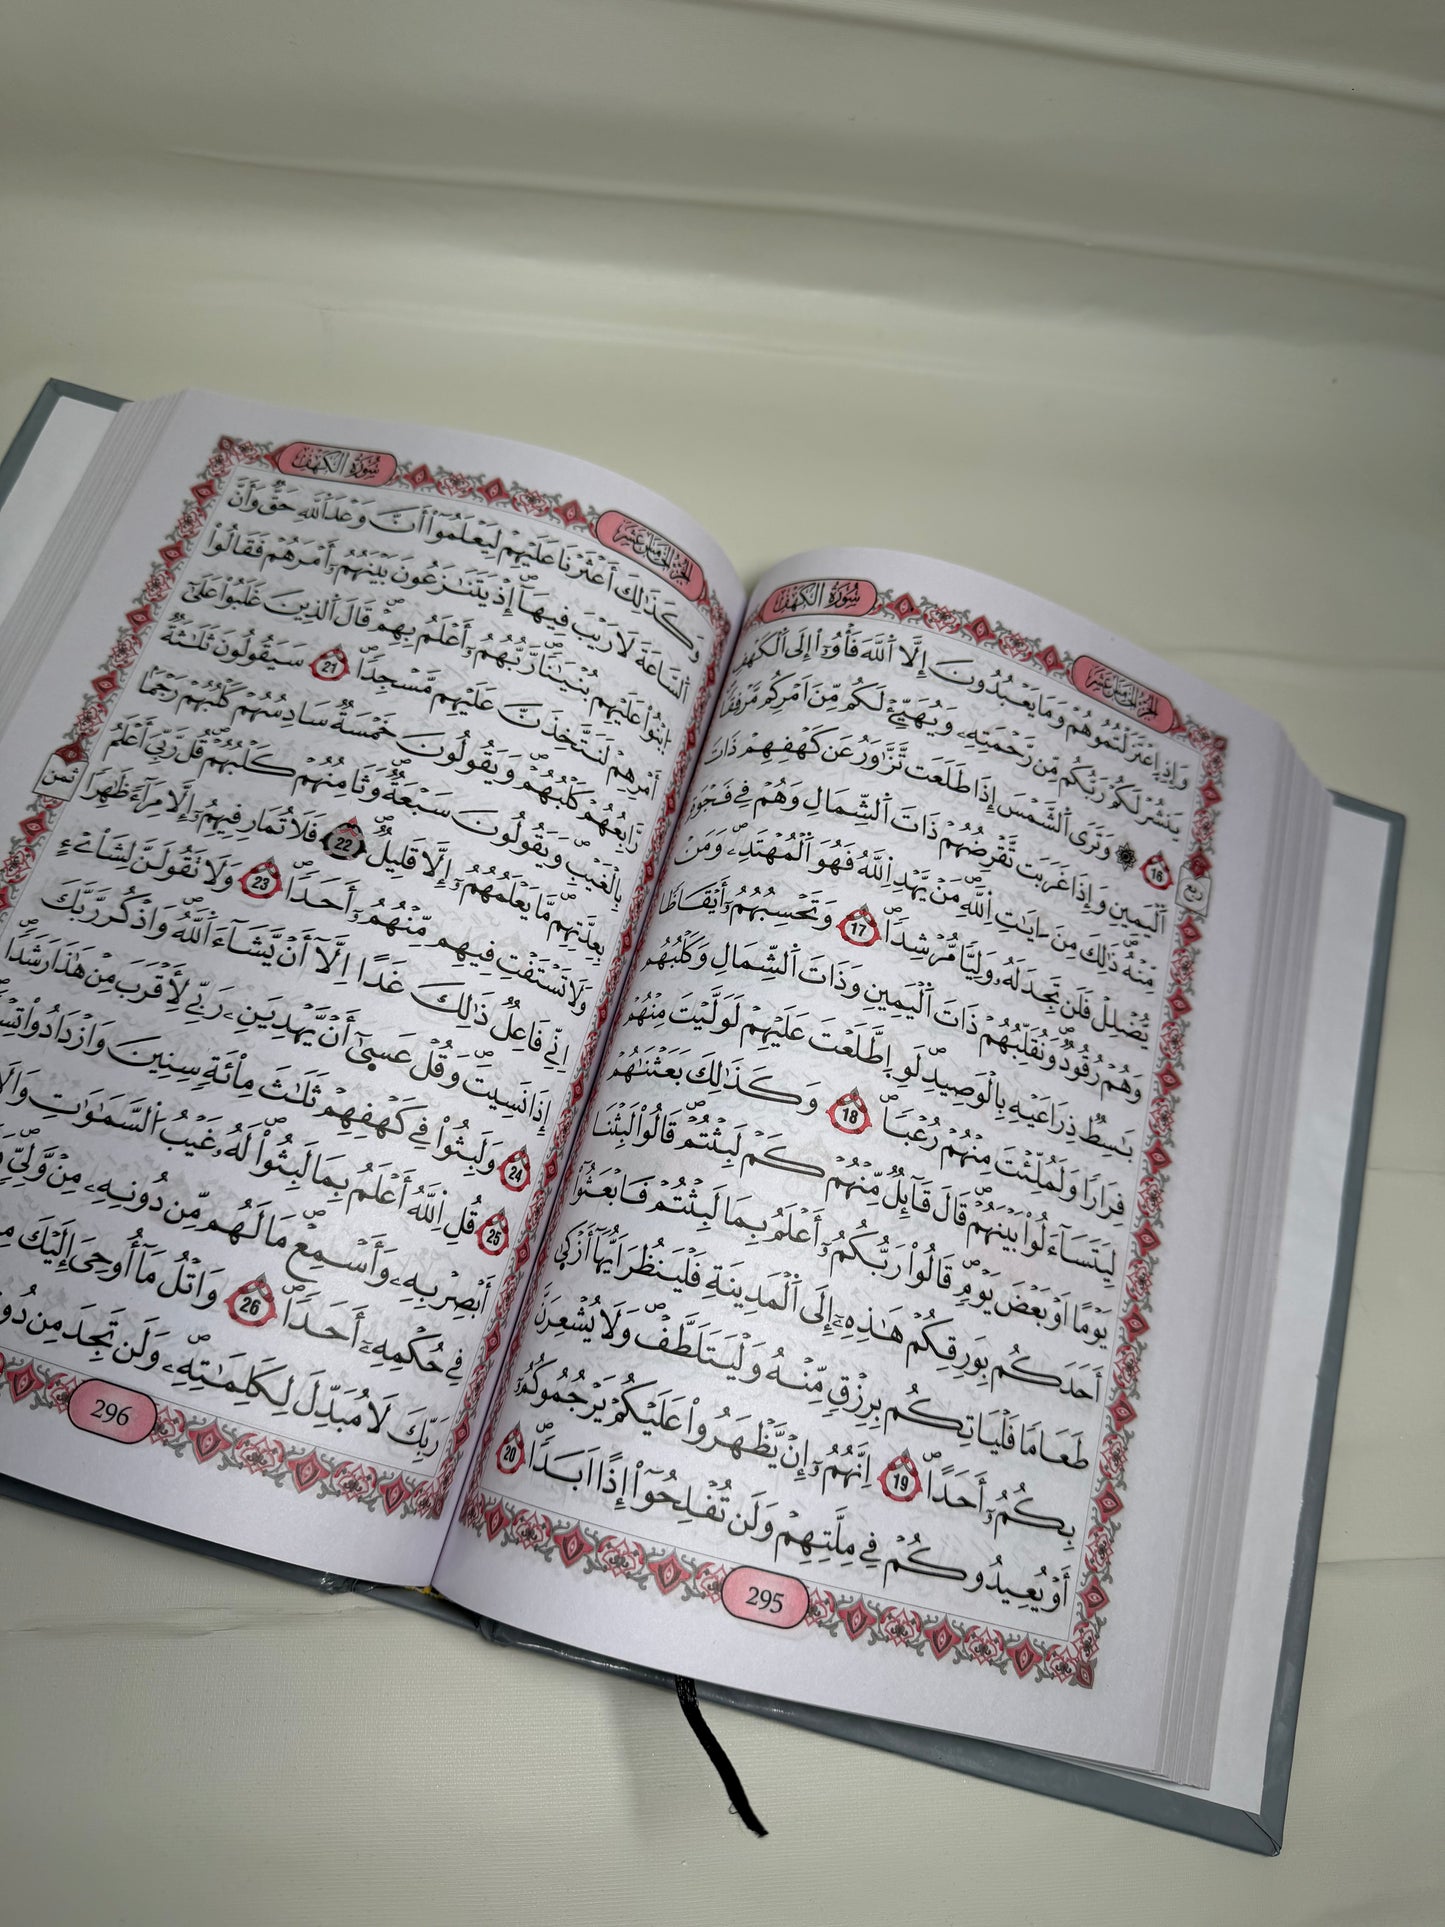 سُورَةُ الكَهْف
الجزء الخامس عشر
وَإِذِ اِ۪عْتَزَلْتُمُوهُمْ وَمَا يَعْبُدُونَ إِلَّا اَ۬للَّهَ فَأْوُۥٓاْ إِلَى اَ۬لْكَهْفِ
يَنشُرْ لَكُمْ رَبُّكُم مِّن رَّحْمَتِهِۦ وَيُهَيِّئْ لَكُم مِّنَ اَمْرِكُم مَّرْفِقًا
16 ۞ وَتَرَى اَ۬لشَّمْسَ إِذَا طَلَعَت تَّزَّٰوَرُ عَن كَهْفِهِمْ ذَاتَ
اَ۬لْيَمِينِ وَإِذَا غَرَبَت تَّقْرِضُهُمْ ذَاتَ اَ۬لشِّمَالِ وَهُمْ فِي فَجْوَةٍ
مِّنْهُ ذَٰلِكَ مِنَ ـاٰيَٰتِ اِ۬للَّهِ مَنْ يَّهْدِ اِ۬للَّهُ فَهُوَ اَ۬لْمُهْتَدِۦ وَمَنْ
يُّضْلِلْ فَلَن تَجِدَ لَهُۥ وَلِيّٗا مُّرْشِدٗا 17 وَتَحْسِبُهُمُۥٓ أَيْقَاظٗا
وَهُمْ رُقُودٞ وَنُقَلِّبُهُمْ ذَاتَ اَ۬لْيَمِينِ وَذَاتَ اَ۬لشِّمَالِ وَكَلْبُهُم
بَٰسِطٞ ذِرَاعَيْهِ بِالْوَصِيدِ لَوِ اِ۪طَّلَعْتَ عَلَيْهِمْ لَوَلَّيْتَ مِنْهُمْ
فِرَارٗا وَلَمُلِّئْتَ مِنْهُمْ رُعْبٗا 18 وَكَذَٰلِكَ بَعَثْنَٰهُمْ
لِيَتَسَآءَلُواْ بَيْنَهُمْ قَالَ قَآئِلٞ مِّنْهُمْ كَمْ لَبِثْتُمْ قَالُواْ لَبِثْنَا
يَوْمًا اَوْ بَعْضَ يَوْمٖ قَالُواْ رَبُّكُمُۥٓ أَعْلَمُ بِمَا لَبِثْتُمْ فَابْعَثُوٓاْ
أَحَدَكُم بِوَرِقِكُمْ هَٰذِهِۦٓ إِلَى اَ۬لْمَدِينَةِ فَلْيَنظُرَ اَيُّهَآ أَزْكَىٰ
طَعَامٗا فَلْيَاتِكُم بِرِزْقٖ مِّنْهُ وَلْيَتَلَطَّفْ وَلَا يُشْعِرَنَّ
بِكُمُۥٓ أَحَدًا 19 اِنَّهُمُۥٓ إِنْ يَّظْهَرُواْ عَلَيْكُمْ يَرْجُمُوكُمُۥٓ
أَوْ يُعِيدُوكُمْ فِي مِلَّتِهِمْ وَلَن تُفْلِحُوٓاْ إِذًا اَبَدٗا 20
ربع
295
سُورَةُ الكَهْف
الجزء الخامس عشر
وَكَذَٰلِكَ أَعْثَرْنَا عَلَيْهِمْ لِيَعْلَمُوٓاْ أَنَّ وَعْدَ اَ۬للَّهِ حَقّٞ وَأَنَّ
اَ۬لسَّاعَةَ لَا رَيْبَ فِيهَآ إِذْ يَتَنَٰزَعُونَ بَيْنَهُمُۥٓ أَمْرَهُمْ فَقَالُواْ
اُ۪بْنُواْ عَلَيْهِم بُنْيَٰنٗا رَّبُّهُمُۥٓ أَعْلَمُ بِهِمْ قَالَ اَ۬لذِينَ غَلَبُواْ عَلَىٰٓ
أَمْرِهِمْ لَنَتَّخِذَنَّ عَلَيْهِم مَّسْجِدٗا 21 سَيَقُولُونَ ثَلَٰثَةٞ
رَّابِعُهُمْ كَلْبُهُمْ وَيَقُولُونَ خَمْسَةٞ سَادِسُهُمْ كَلْبُهُمْ رَجْمَۢا
بِالْغَيْبِ وَيَقُولُونَ سَبْعَةٞ وَثَامِنُهُمْ كَلْبُهُمْ قُل رَّبِّيَ أَعْلَمُ
بِعِدَّتِهِم مَّا يَعْلَمُهُمُۥٓ إِلَّا قَلِيلٞ 22 فَلَا تُمَارِ فِيهِمُۥٓ إِلَّا مِرَآءٗ ظَٰهِرٗا
وَلَا تَسْتَفْتِ فِيهِم مِّنْهُمُۥٓ أَحَدٗا 23 وَلَا تَقُولَنَّ لِشَاْےْءٍ
اِنِّي فَاعِلٞ ذَٰلِكَ غَدًا اِلَّآ أَنْ يَّشَآءَ اَ۬للَّهُ وَاذْكُر رَّبَّكَ
إِذَا نَسِيتَ وَقُلْ عَسَىٰٓ أَنْ يَّهْدِيَنِۦ رَبِّي لِأَقْرَبَ مِنْ هَٰذَا رَشَدٗا
24 وَلَبِثُواْ فِي كَهْفِهِمْ ثَلَٰثَ مِاْئَةٖ سِنِينَ وَازْدَادُواْ
25 قُلِ اِ۬للَّهُ أَعْلَمُ بِمَا لَبِثُواْ لَهُۥ غَيْبُ اُ۬لسَّمَٰوَٰتِ
أَبْصِرْ بِهِۦ وَأَسْمِعْ مَا لَهُم مِّن دُونِهِۦ مِنْ وَّلِيّٖ
فِي حُكْمِهِۦٓ أَحَدٗا 26 وَاتْلُ مَآ أُوحِيَ إِلَيْكَ
رَبِّكَ لَا مُبَدِّلَ لِكَلِمَٰتِهِۦ وَلَن تَجِدَ مِن
ثمن
296